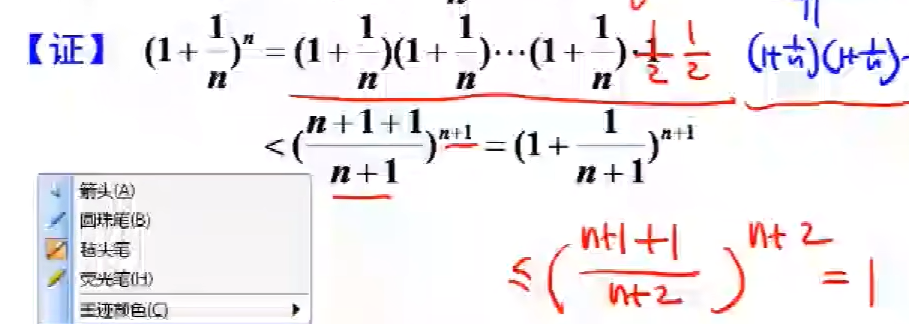 【证】 (1+1/n)^n = (1+1/n)(1+1/n)⋯(1+1/n)·1 1/2 1/2 (1+1/n)(1+1/n)
<((n+1+1)/(n+1))^(n+1) = (1+1/(n+1))^(n+1)
箭头(A)
圆珠笔(B)
毡头笔
荧光笔(H)
墨迹颜色(C)
≤((n+1+1)/(n+2))^(n+2) = 1